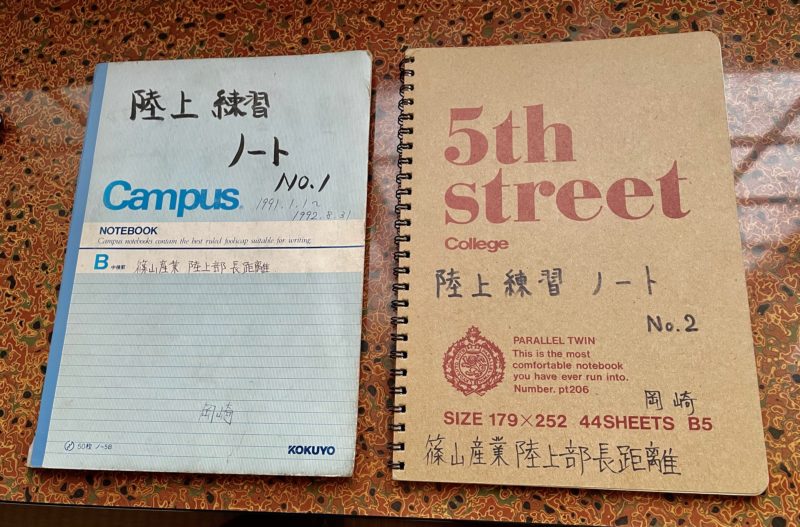 陸上練習
ノート
No.1
Campus
1991.1.1～
1992.8.31
NOTEBOOK
Campus notebooks contain the best ruled foolscap suitable for writing.
B 中横罫
篠山産業 陸上部長距離
岡崎
50枚 ノ-5B
KOKUYO
5th
street
College
陸上練習 ノート
No.2
PARALLEL TWIN
This is the most
comfortable notebook
you have ever run into.
Number. pt206
岡崎
SIZE 179×252 44SHEETS B5
篠山産業陸上部長距離